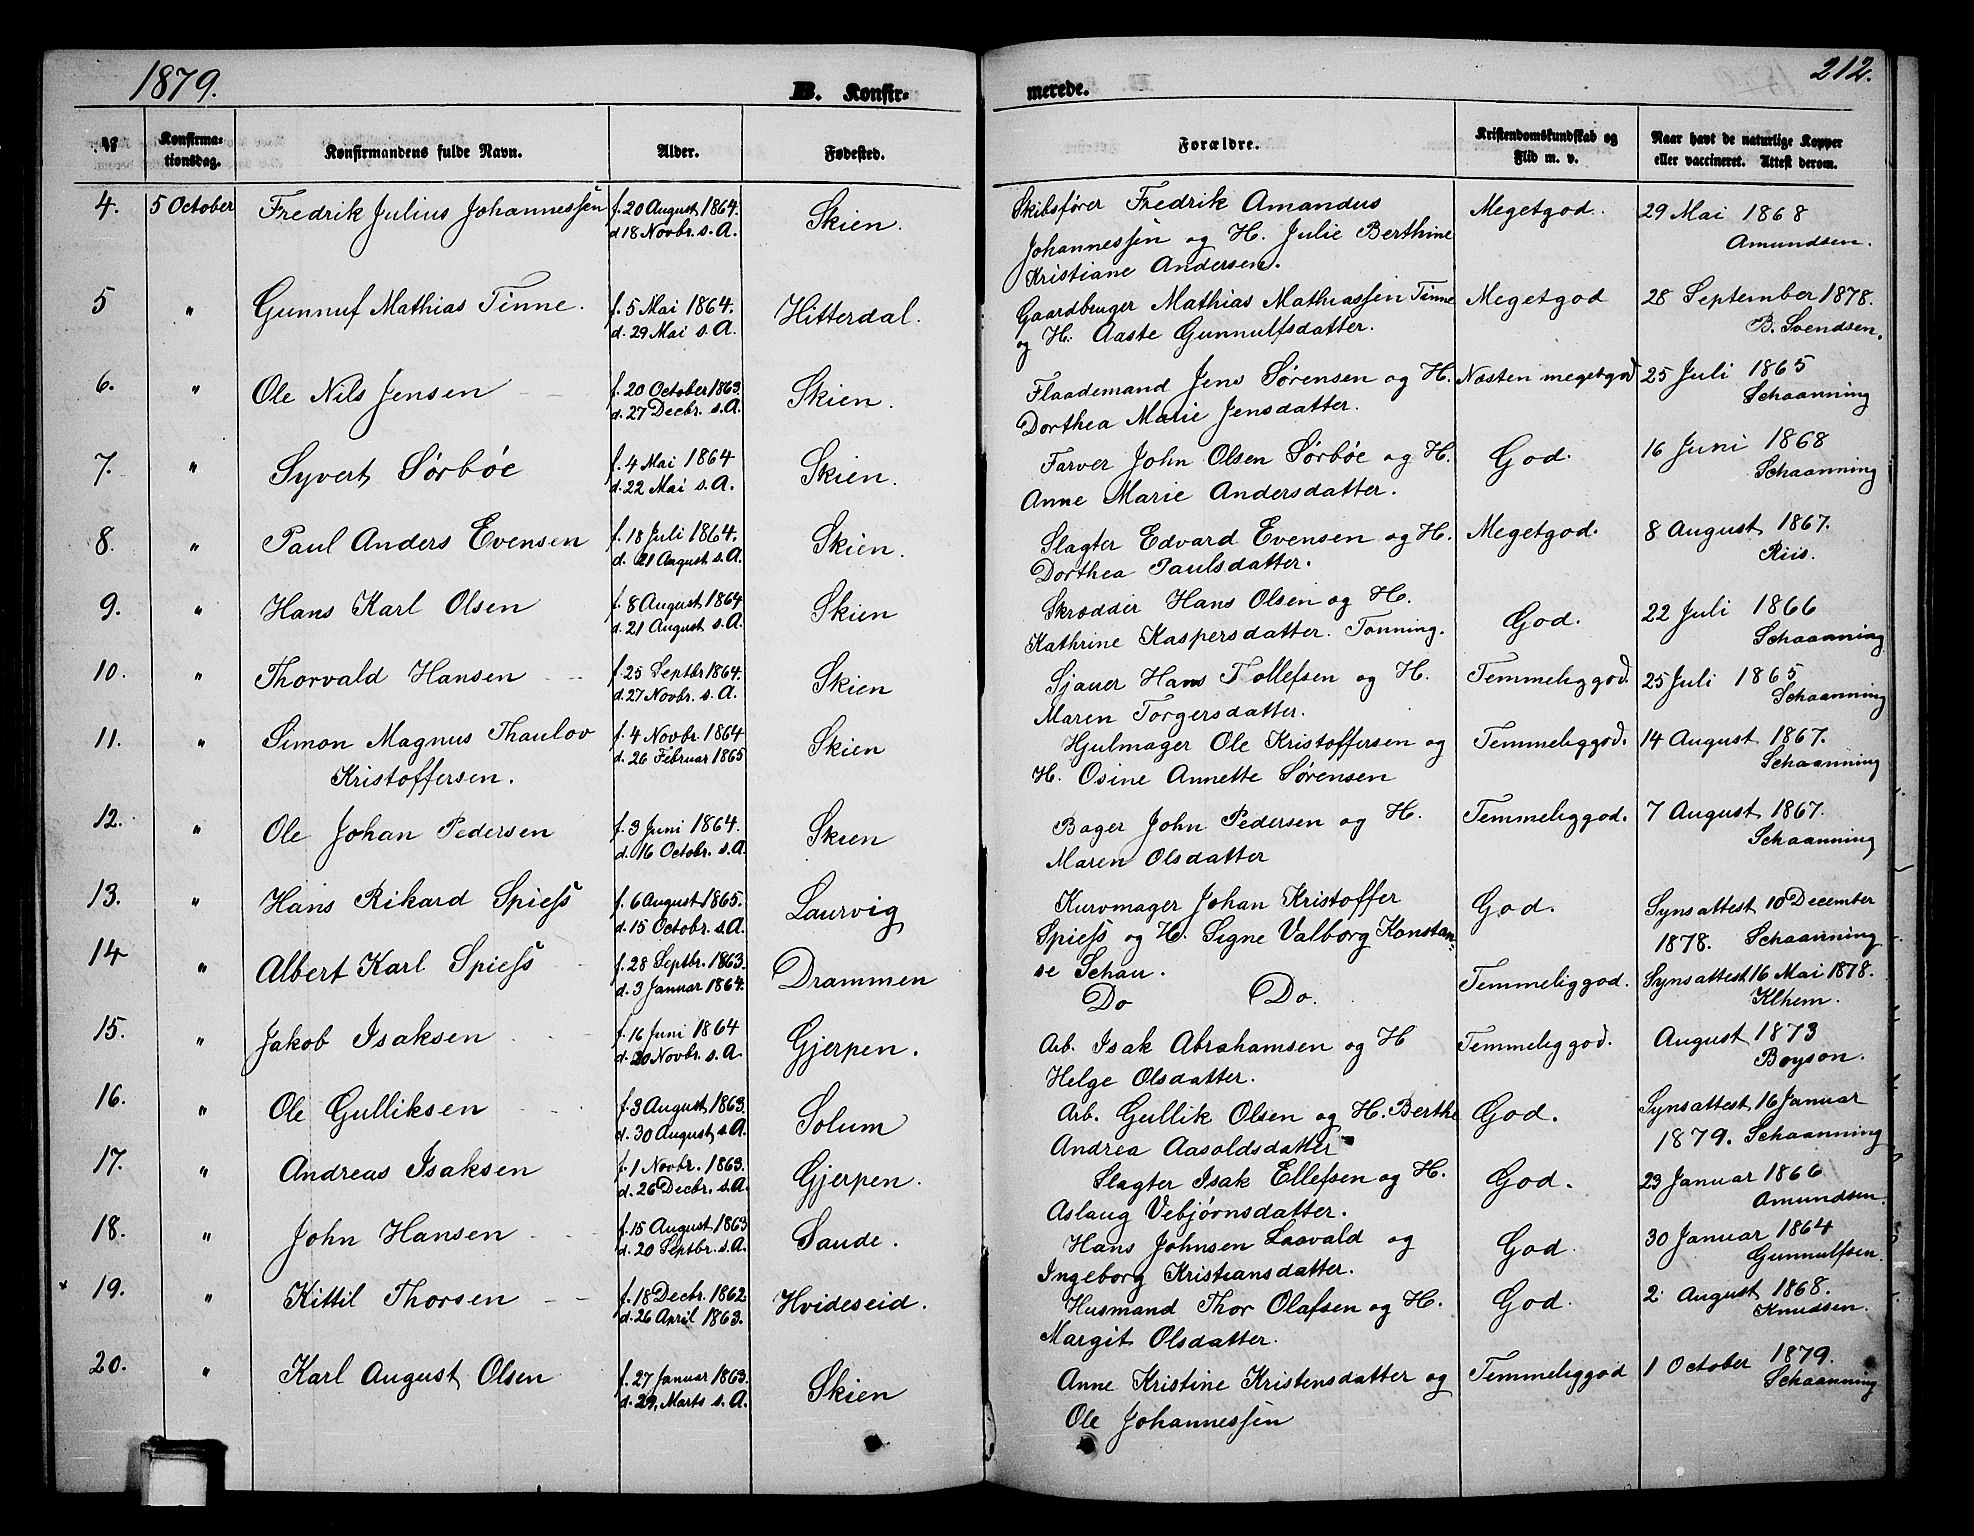 1879.
B. Konfir-
merede.
212.
№
Konfirma-
tionsdag.
Konfirmandens fulde Navn.
Alder.
Fødested.
Forældre.
Kristendomskundskab og
Flid m. v.
Naar havt de naturlige Kopper
eller vaccineret. Attest derom.
4. 5 October Fredrik Julius Johannessen f. 20 August 1864. Skien. Skibsfører Fredrik Amandus Megetgod. 29 Mai 1868
d 18 Novbr. s. A. Johannessen og H. Julie Berthine Amundsen.
Kristiane Andersen.
5 " Gunnuf Mathias Tinne. f. 5 Mai 1864. Hitterdal. Gaardbruger Mathias Mathiassen Tinne Megetgod 28 September 1878.
d. 29 Mai s. A. og H. Aaste Gunnulfsdatter. B. Svendsen.
6. " Ole Nils Jensen f. 20 October 1863. Skien. Flaademand Jens Sørensen og H. Næsten megetgod 25 Juli 1865
d. 27 Decbr. s. A. Dorthea Marie Jensdatter. Schaanning
7. " Syvert Sørbøe f. 4 Mai 1864 Skien. Farver John Olsen Sørbøe og H. God. 16 Juni 1868
d. 22 Mai s. A. Anne Marie Andersdatter. Schaanning
8. " Paul Anders Evensen f. 18 Juli 1864. Skien. Slagter Edvard Evensen og H. Megetgod. 8 August 1867.
d. 21 August s. A. Dorthea Paulsdatter. Riis.
9. " Hans Karl Olsen f. 8 August 1864 Skien Skrædder Hans Olsen og H. God. 22 Juli 1866
d. 21 August s. A. Kathrine Kaspersdatter. Tønning. Schaanning
10. " Thorvald Hansen f. 25 Septbr 1864. Skien Sjauer Hans Tollefsen og H. Temmeliggod. 25 Juli 1865
d. 27 Novbr. s. A. Maren Torgersdatter. Schaanning
11. " Simon Magnus Thaulov f. 4 Novbr. 1864 Skien Hjulmager Ole Kristoffersen og Temmeliggod. 14 August 1867.
Kristoffersen. d. 26 Februar 1865 H. Osine Annette Sørensen Schaanning
12. " Ole Johan Pedersen f. 3 Juni 1864. Skien Bager John Pedersen og H. Temmeliggod. 7 August 1867.
d. 16 Octobr. s. A. Maren Olsdatter Schaanning
13. " Hans Rikard Spiess f. 6 August 1865. Laurvig Kurvmager Johan Kristoffer God. Synsattest 10 December
d. 15 Octobr. s. A. Spiess og H. Signe Valborg Konstan- 1878. Schaanning
se Schau.
14 " Albert Karl Spiess f. 28 Septbr. 1863. Drammen Do Do. Temmeliggod. Synsattest 16 Mai 1878.
d. 3 Januar 1864. Klhem.
15. " Jakob Isaksen f. 16 Juni 1864 Gjerpen. Arb. Isak Abrahamsen og H Temmeliggod. August 1873
d. 20 Novbr. s. A. Helge Olsdatter. Boyson.
16. " Ole Gulliksen f. 3 August 1863. Solum Arb. Gullik Olsen og H. Berthe God. Synsattest 16 Januar
d. 30 August s. A. Andrea Aasoldsdatter 1879. Schaanning
17. " Andreas Isaksen f. 1 Novbr. 1863. Gjerpen. Slagter Isak Ellefsen og H. God. 23 Januar 1866
d. 26 Decbr. s. A. Aslaug Vebjørnsdatter. Amundsen.
18. " John Hansen f. 15 August 1863 Saude. Hans Johnsen Laavald og God. 30 Januar 1864
d. 20 Septbr. s. A. Ingeborg Kristiansdatter. Gunnulfsen.
x 19. " Kittil Thorsen f. 18 Decbr. 1862 Hvideseid. Husmand Thor Olafsen og H. God. 2 August 1868.
d. 26 April 1863. Margit Olsdatter. Knudsen.
20. " Karl August Olsen f. 27 Januar 1863. Skien Anne Kristine Kristensdatter og Temmeliggod 1 October 1879.
d. 29, Marts s. A. Ole Johannessen Schaanning